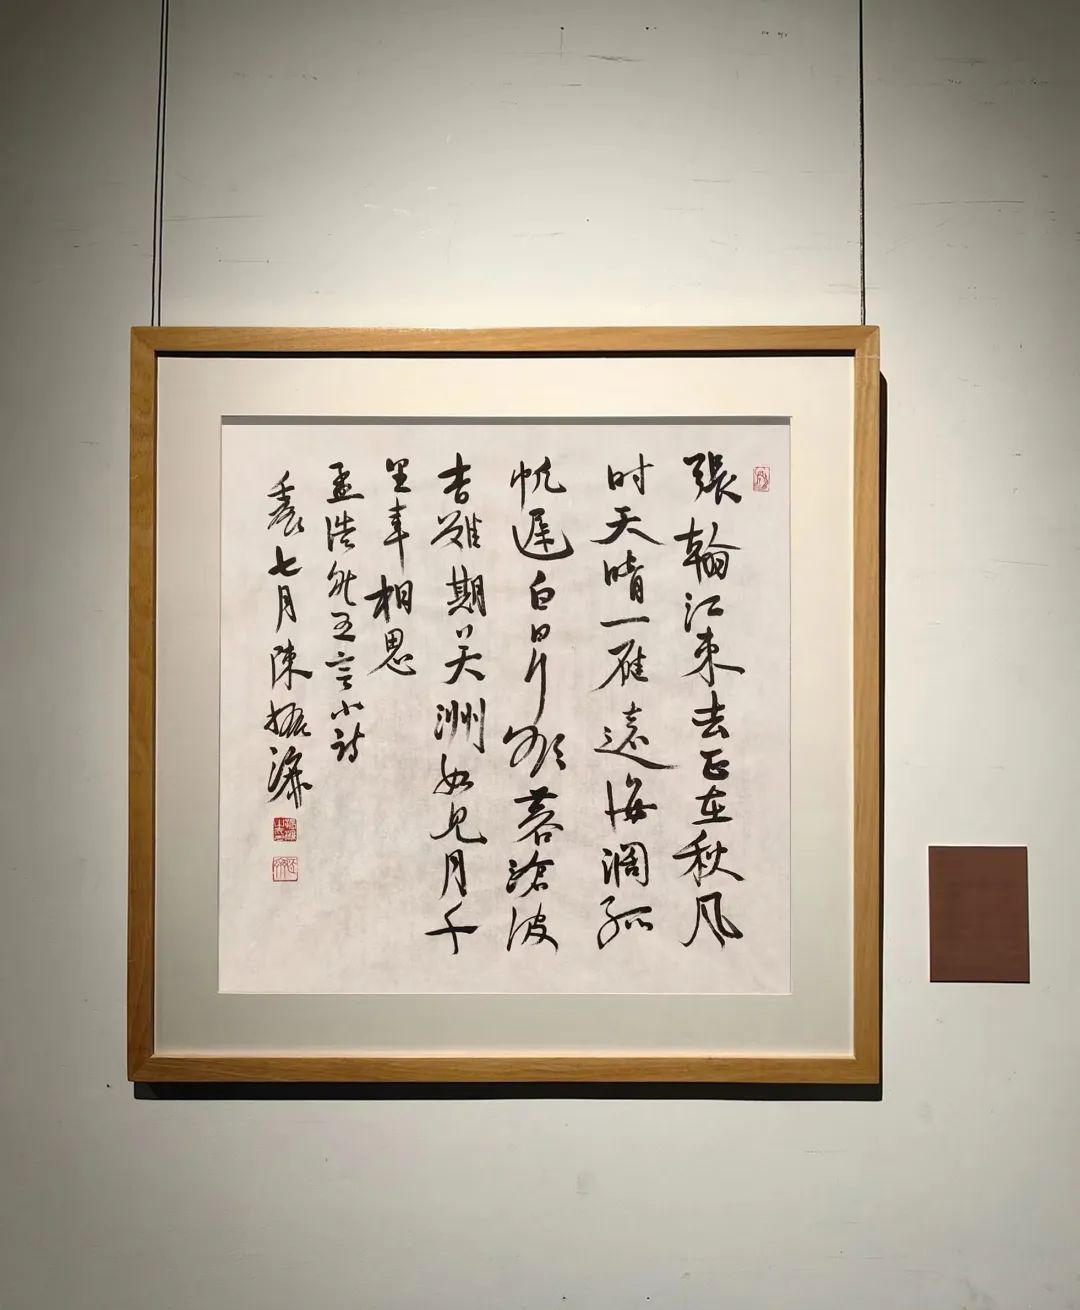 張翰江東去正在秋风
时天晴一雁遠海濶孤
帆遲白日行欲暮滄波
杳難期吴洲如见月千
里幸相思
孟浩然五言小诗
七月陳振濂